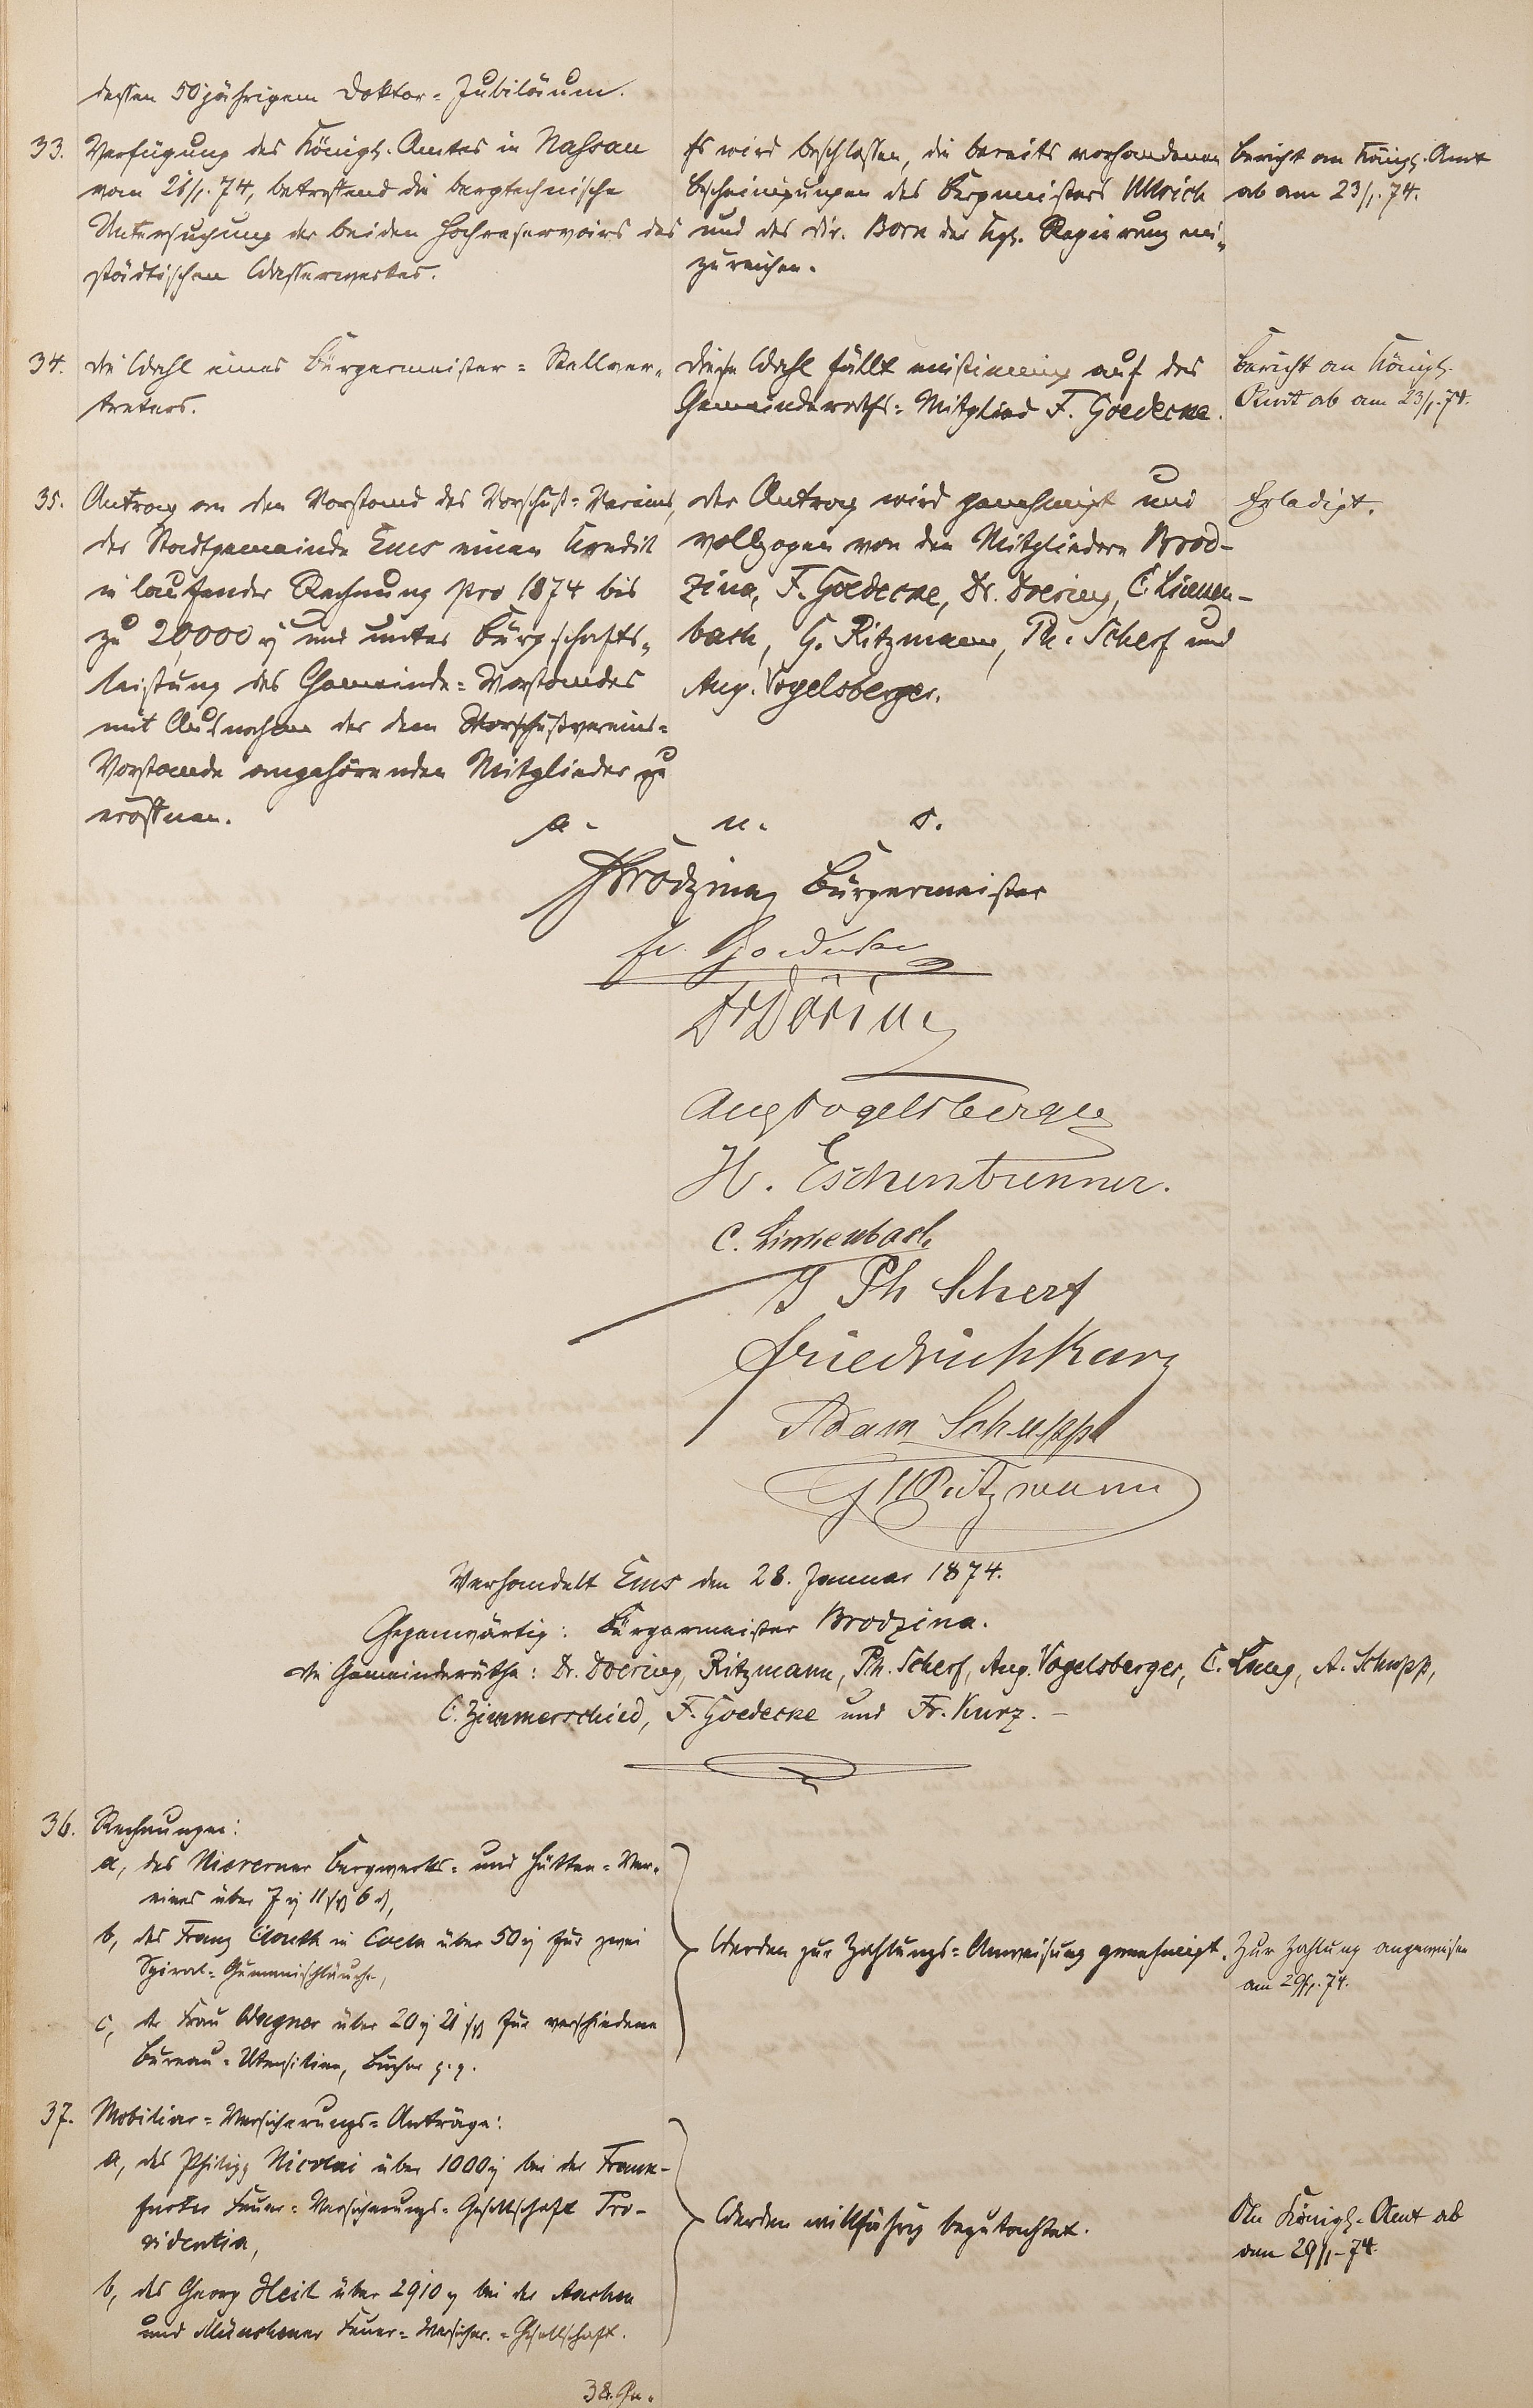 dessen 50jährigem Doktor-Jubiläum.
33. Verfügung des Königl. Amtes in Nassau
vom 21/1. 74, betreffend die bergtechnische
Untersuchung der beiden Hochreservoirs des
städtischen Wasserwerkes.
Es wird beschlossen, die bereits vorhandenen
Bescheinigungen des Bergmeisters Ullrich
und des Dir. Born der Kgl. Regierung ein-
zureichen.
Bericht an Königl. Amt
ab am 23/1. 74.
34. Die Wahl eines Bürgermeister-Stellver-
treters.
Diese Wahl fällt einstimmig auf das
Gemeinderaths-Mitglied F. Goedecke.
Bericht an Königl.
Amt ab am 23/1. 74.
35. Antrag an den Vorstand des Vorschuß-Vereins,
der Stadtgemeinde Ems einen Kredit
in laufender Rechnung pro 1874 bis
zu 20,000 rℓ und unter Bürgschafts-
leistung des Gemeinde-Vorstandes
mit Ausnahme der dem Vorschußvereins-
Vorstande angehörenden Mitglieder zu
eröffnen.
Der Antrag wird genehmigt und
vollzogen von den Mitgliedern Brod-
zina, F. Goedecke, Dr. Doering, C. Linken-
bach, G. Ritzmann, Ph. Scherf und
Aug. Vogelsberger.
Erledigt.
a. u. s.
Brodzina, Bürgermeister
Fr. Goedecke
Dr Döring
Aug Vogelsberger
H. Eschenbrenner.
C. Linkenbach
J Ph Scherf
Friedrich Kurz
Adam Schupp
G H Ritzmann
Verhandelt Ems den 28. Januar 1874.
Gegenwärtig: Bürgermeister Brodzina.
Die Gemeinderäthe: Dr. Doering, Ritzmann, Ph. Scherf, Aug. Vogelsberger, C. Lang, A. Schupp,
C. Zimmerschied, F. Goedecke und Fr. Kurz. -
36. Rechnungen:
a, des Nieverner Bergwerks- und Hütten-Ver-
eines über 7 rℓ 11 sgr 6 d,
b, des Franz Clouth in Coeln über 50 rℓ für zwei
Spiral-Gummischläuche,
c, der Frau Wagner über 20 rℓ 21 sgr für verschiedene
Bureau-Utensilien, Bücher p. p.
Werden zur Zahlungs-Anweisung genehmigt.
Zur Zahlung angewiesen
am 29/1. 74.
37. Mobiliar-Versicherungs-Anträge:
a, des Philipp Nicolai über 1000 rℓ bei der Frank-
furter Feuer-Versicherungs-Gesellschaft Pro-
videntia,
b, des Georg Heil über 2910 rℓ bei der Aachen
und Münchener Feuer-Versicher.-Gesellschaft.
Werden willfährig begutachtet.
An Königl. Amt ab
am 29/1. 74.
38. Ge-